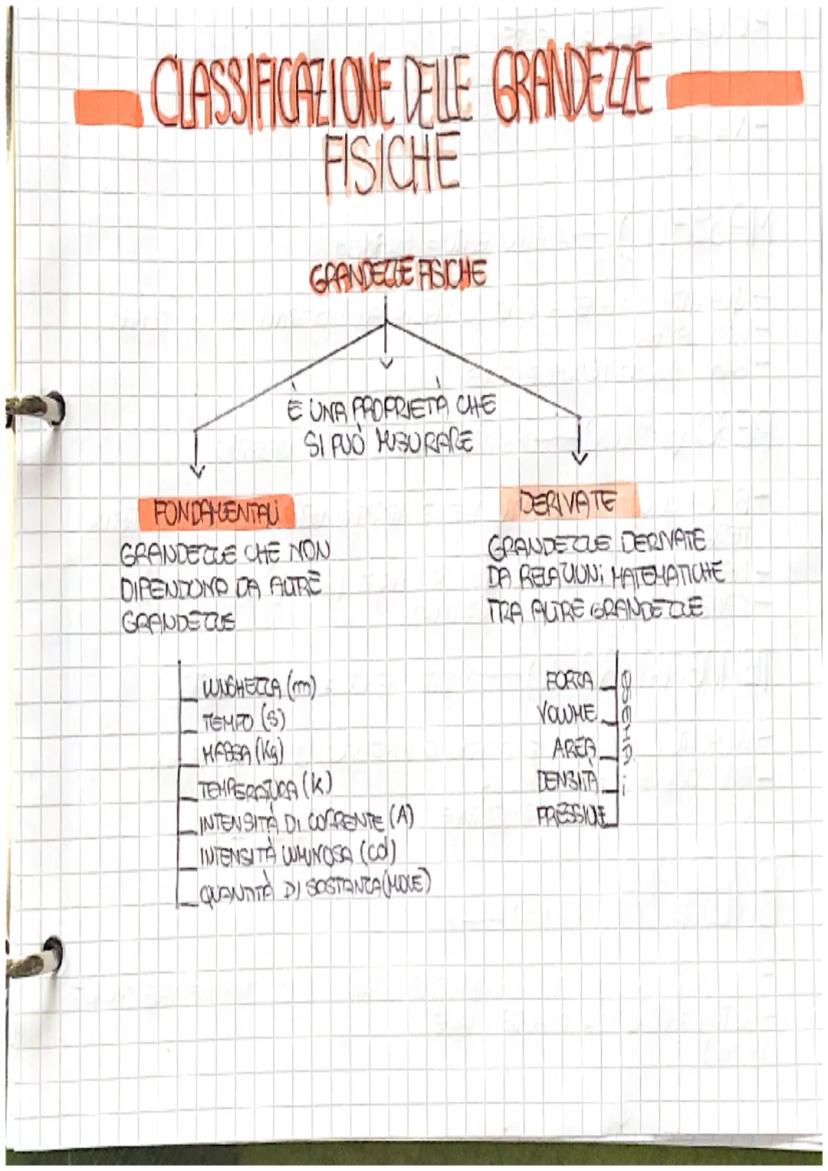 CLASSIFICAZIONE DELLE GRANDEZZE
FISICHE
GRANDEZZE FISICHE
È UNA PROPRIETÀ CHE
SI PUÒ MISURARE
FONDAMENTALI
GRANDEZZE CHE NON
DIPENDONO DA ALTRE
GRANDEZZE
LUNGHEZZA (m)
TEMPO (S)
MASSA (Kg)
TEMPERATURA (K)
INTENSITÀ DI CORRENTE (A)
INTENSITÀ LUMINOSA (cd)
QUANTITÀ DI SOSTANZA (MOLE)
DERIVATE
GRANDEZZE DERIVATE
DA RELAZIONI MATEMATICHE
TRA ALTRE GRANDEZZE
FORZA
VOLUME
AREA
DENSITÀ
PRESSIONE